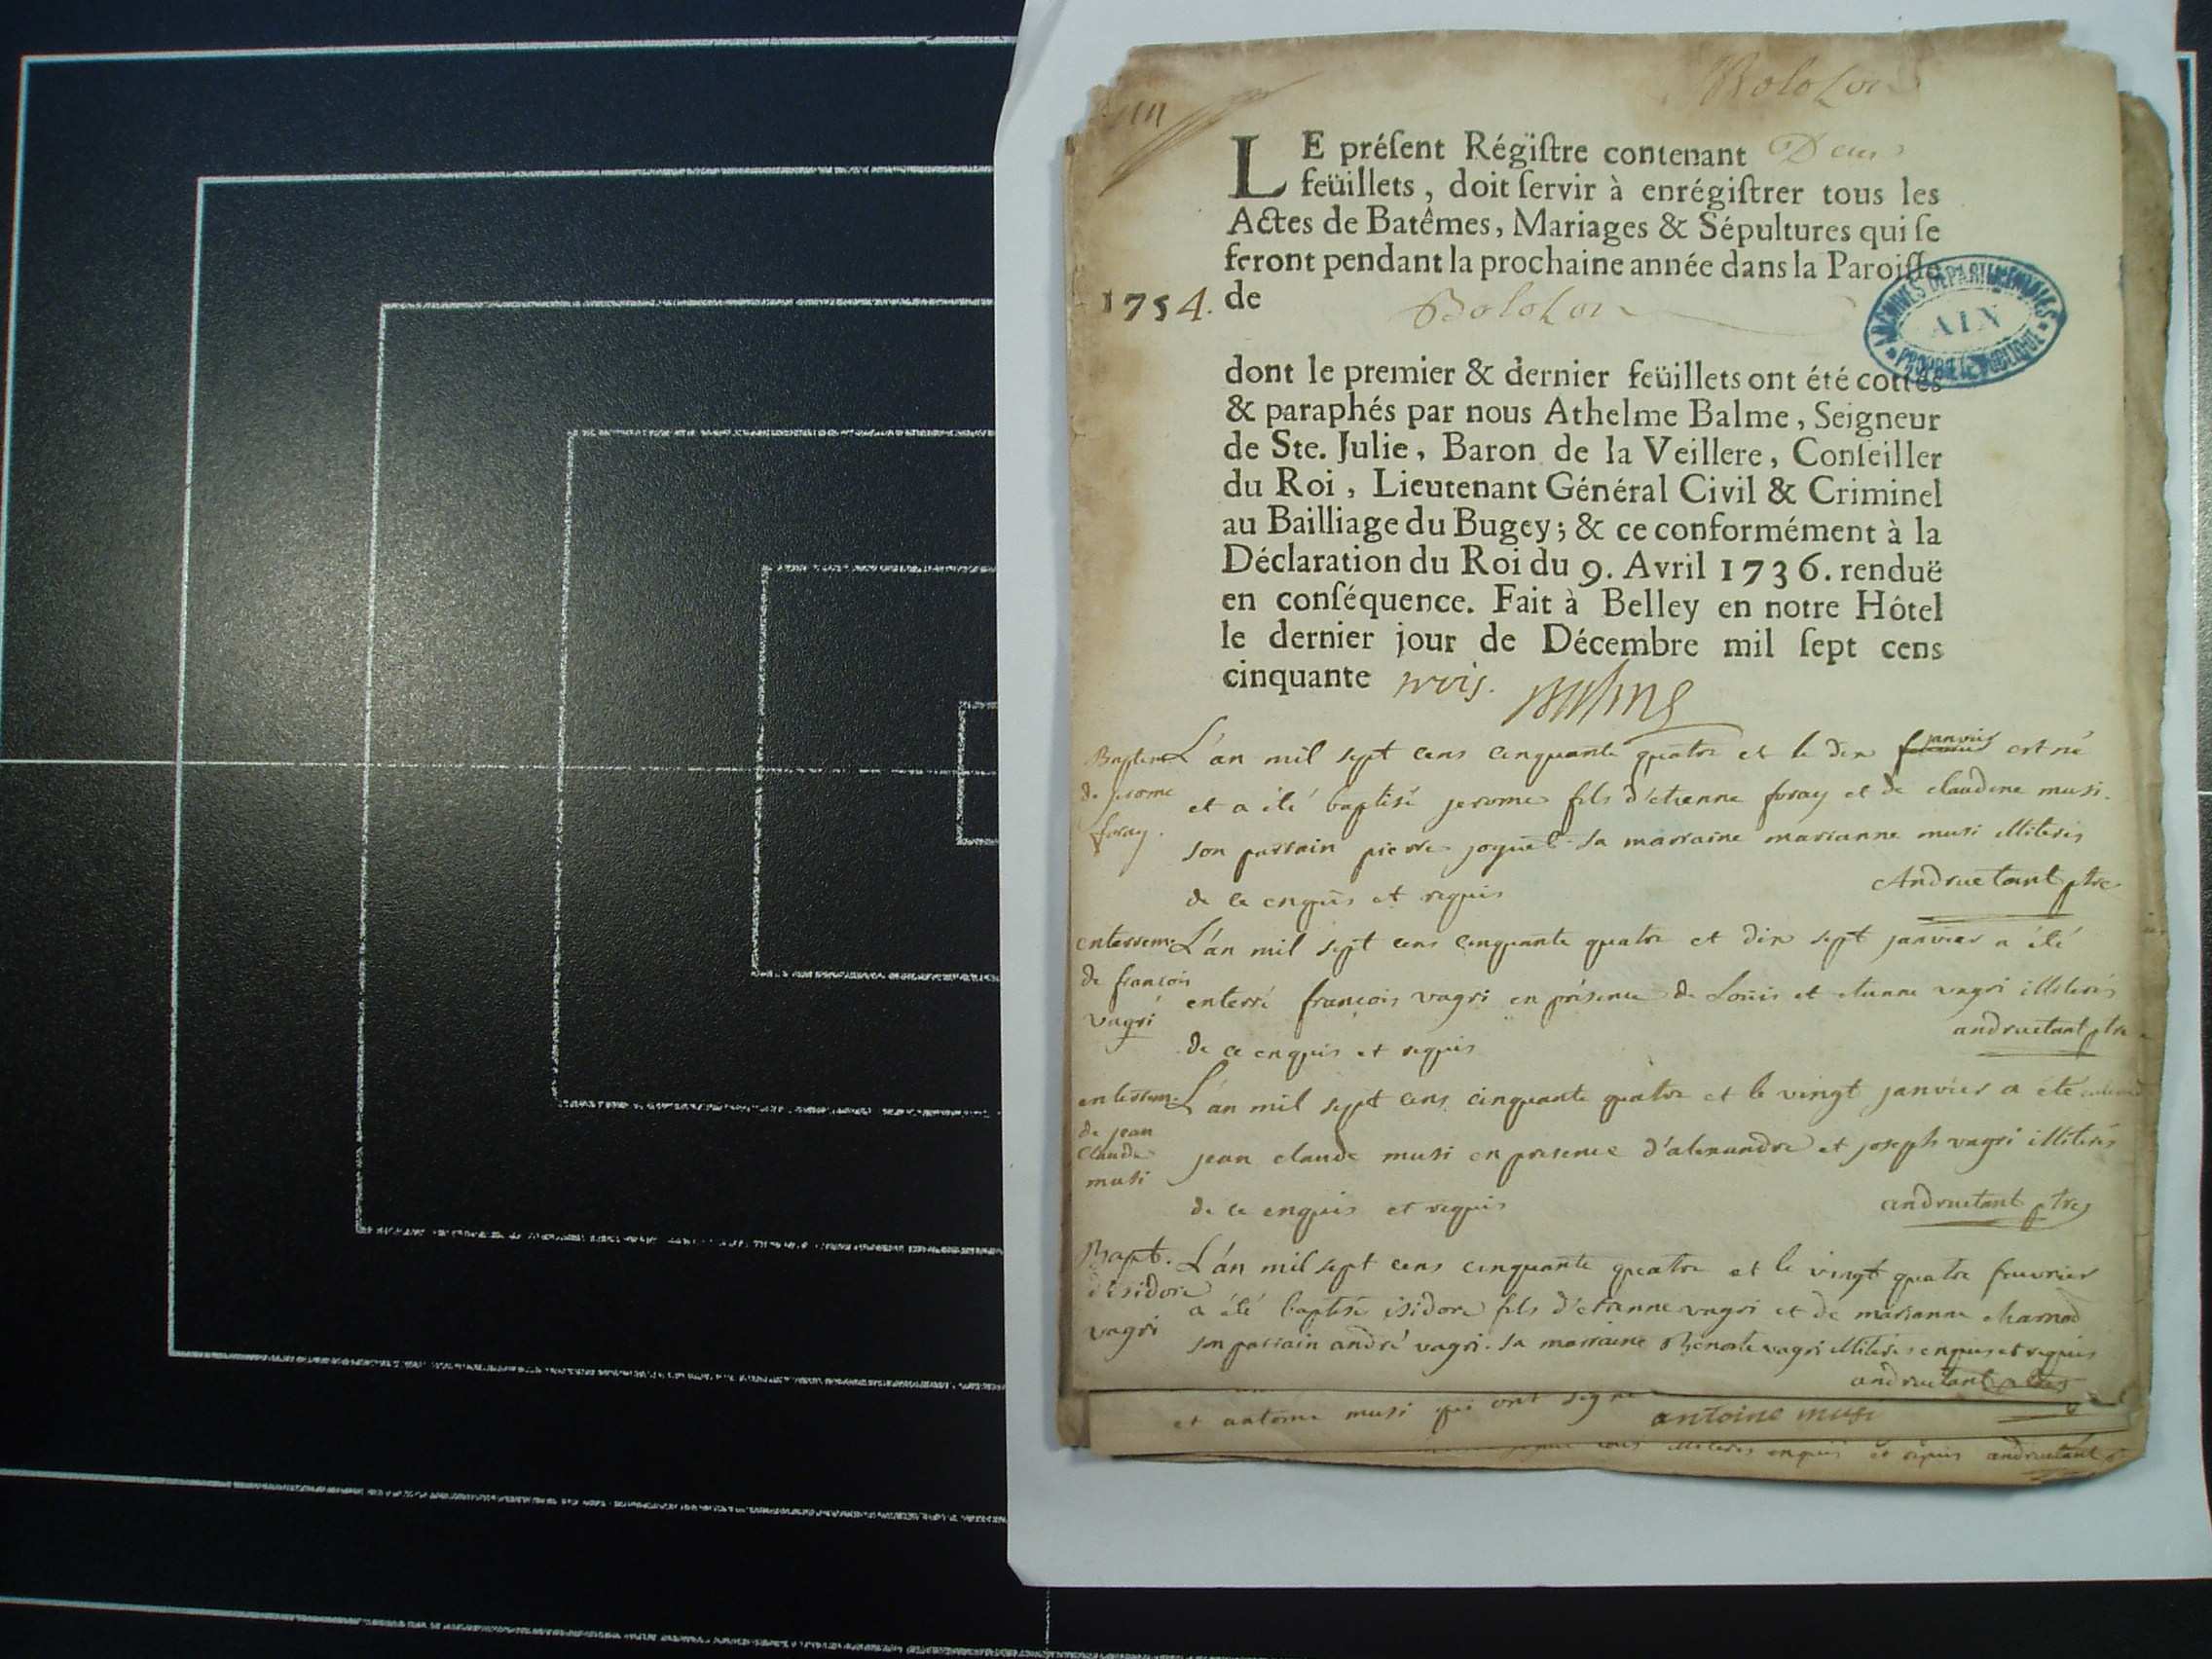 Bolozon
LE préſent Régiſtre contenant Deux
feüillets, doit ſervir à enrégiſtrer tous les
Actes de Batêmes, Mariages & Sépultures qui ſe
feront pendant la prochaine année dans la Paroiſſe
1754. de Bolozon
ARCHIVES DÉPARTEMENTALES
AIN
PROPRIÉTÉ PUBLIQUE
dont le premier & dernier feüillets ont été cottés
& paraphés par nous Athelme Balme, Seigneur
de Ste. Julie, Baron de la Veillere, Conſeiller
du Roi, Lieutenant Général Civil & Criminel
au Bailliage du Bugey; & ce conformément à la
Déclaration du Roi du 9. Avril 1736. renduë
en conſéquence. Fait à Belley en notre Hôtel
le dernier jour de Décembre mil ſept cens
cinquante trois.
Baptem
de jerome
foray.
L'an mil sept cens cinquante quatre et le dix janvier est né
et a été baptisé jerome fils d'etienne foray et de claudine musi.
son parrain pierre joquet sa marraine marianne musi illiterés
de ce enquis et requis
Andruetant ptre
enterrem.
de francois
vagri
L'an mil sept cens cinquante quatre et dix sept janvier a été
enterré francois vagri en présence de Loüis et etienne vagri illiterés
de ce enquis et requis
andruetant ptre
enterrem.
de jean
claude
musi
L'an mil sept cens cinquante quatre et le vingt janvier a été enterré
jean claude musi en presence d'alexandre et joseph vagri illiterés
de ce enquis et requis
andruetant ptre
Bapt.
d'isidore
vagri
L'an mil sept cens cinquante quatre et le vingt quatre fevrier
a été baptisé isidore fils d'etienne vagri et de marianne charnod
son parrain andré vagri. sa marraine vagri illiterés enquis et requis
andruetant ptre
et antoine musi qui ont signé antoine musi
illiterés enquis et requis andruetant